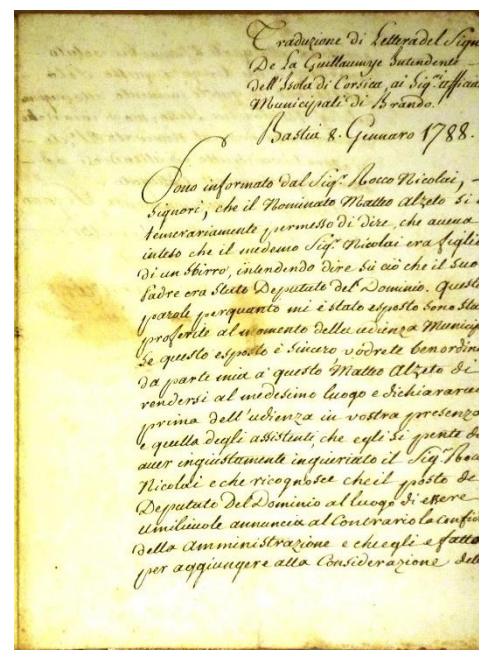 Traduzione di Lettera del Sign
De La Guillaumye Intendente
dell'Isola di Corsica, ai Sig.ri uffici
Municipali di Brando.
Bastia 8. Gennaro 1788.
Sono informato dal Sig.r Rocco Nicolai,
Signori, che il Nominato Matteo Alzeto si è
temerariamente permesso di dire, che aveva
inteso che il medemo Sig.r Nicolai era figlio
di un Sbirro, intendendo dire su ciò che il Suo
Padre era Stato Deputato del Dominio. Queste
parole perquanto mi è stato esposto sono sta
proferite al momento della udienza Municip
Se questo esposto è Sincero vodrete ben ordina
da parte mia a questo Matteo Alzeto di
rendersi al medesimo luogo e dichiarare
prima dell'udienza in vostra presenza
e quella degli assistenti, che egli si pente di
aver ingiustamente ingiuriato il Sig.r Roc
Nicolai e che ricognosce che il posto de
Deputato del Dominio al luogo di essere
umiliuole annuncia al Contrario la confid
della Amministrazione e che egli e fatto
per aggiungere alla Considerazione dell